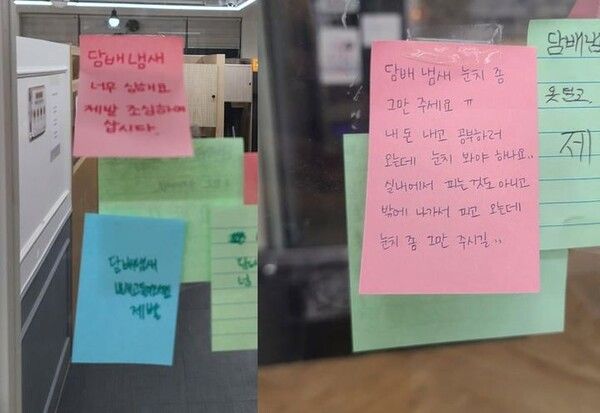 담배냄새
너무 심해요
제발 조심하며
삽시다.
담배냄새
제발
담배
담배 냄새 눈치 좀
그만 주세요 ㅠ
내 돈 내고 공부하러
오는데 눈치 봐야 하나요..
실내에서 피는것도 아니고
밖에 나가서 피고 오는데
눈치 좀 그만 주시길..
담배냄
옷 털고
제